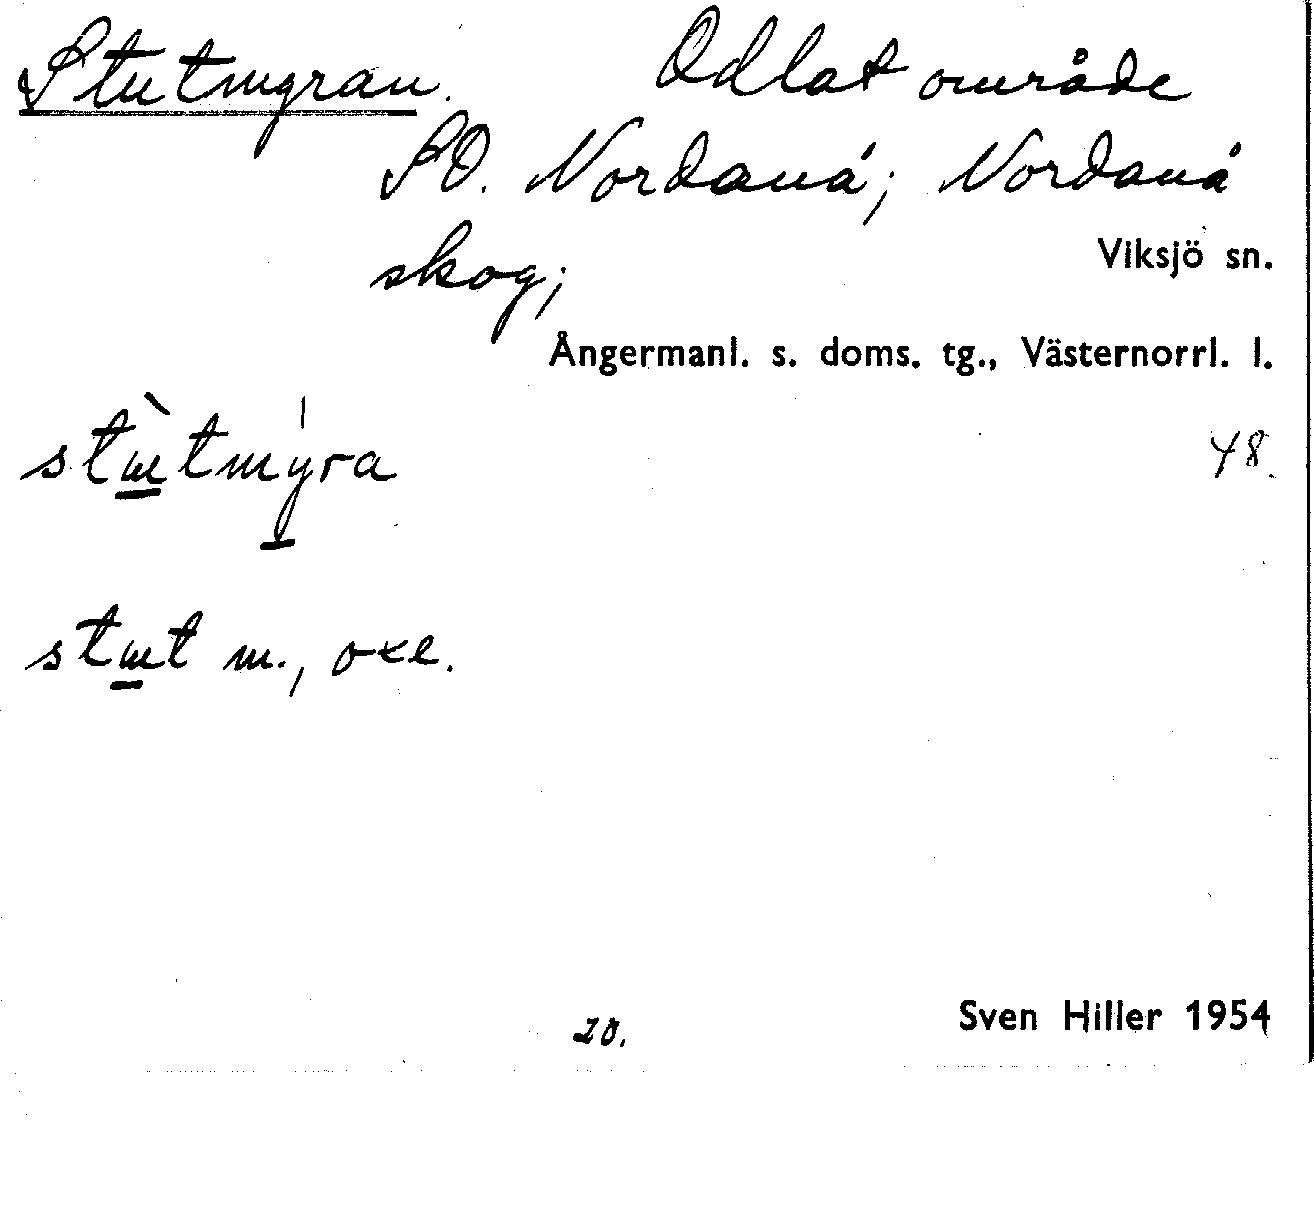 Stutmyran. Odlat område
SO. Nordanå; Nordanå
skog;
Viksjö sn.
Ångermanl. s. doms. tg., Västernorrl. l.
stʉ̀tmýra
48.
stʉt m., oxe.
20.
Sven Hiller 1954